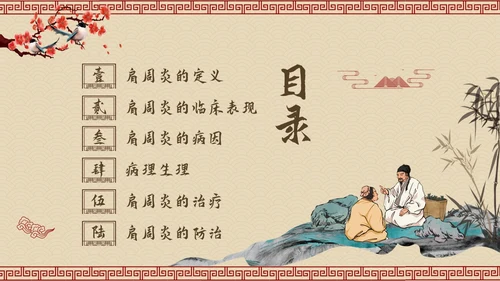 目录
壹 肩周炎的定义
贰 肩周炎的临床表现
叁 肩周炎的病因
肆 病理生理
伍 肩周炎的治疗
陆 肩周炎的防治